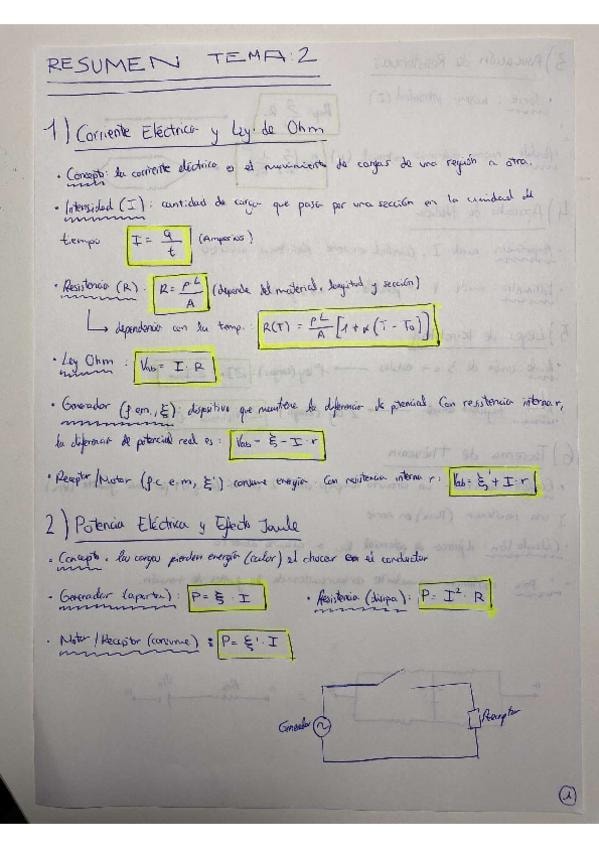 RESUMEN TEMA: 2
1) Corriente Eléctrica y Ley de Ohm
• Concepto: la corriente eléctrica es el movimiento de cargas de una región a otra.
• Intensidad (I): cantidad de carga que pasa por una sección en la unidad de
tiempo I = q/t (Amperios)
• Resistencia (R): R = ρL/A (depende del material, longitud y sección)
↳ dependencia con la temp.: R(T) = ρL/A [1 + α (T - T0)]
• Ley Ohm: Vab = I · R
• Generador (f em, ξ): dispositivo que mantiene la diferencia de potencial. Con resistencia interna r,
la diferencia de potencial real es: Vab = ξ - I · r
• Receptor/Motor (f c e.m, ξ') consume energía. Con resistencia interna r: Vab = ξ' + I · r
2) Potencia Eléctrica y Efecto Joule
• Concepto: las cargas pierden energía (calor) al chocar con el conductor
• Generador (aporta): P = ξ · I • Resistencia (disipa): P = I² · R
• Motor/Receptor (consume): P = ξ' · I
Generador
Receptor
1